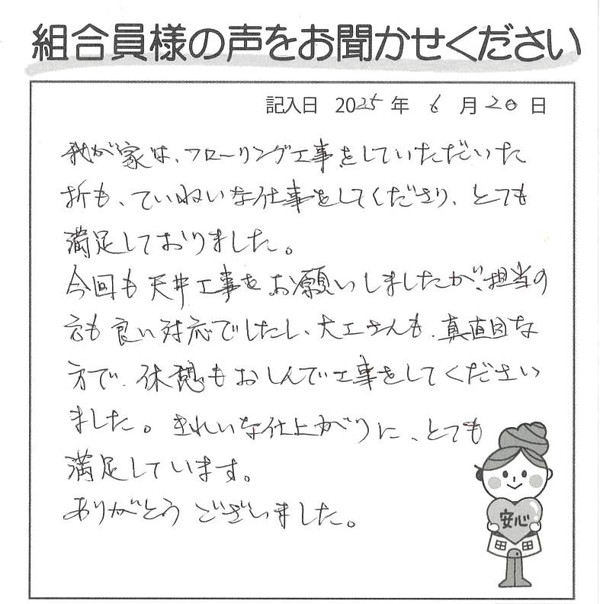 組合員様の声をお聞かせください
記入日 2025年 6月20日
我が家は、フローリング工事をしていただいた
折も、ていねいな仕事をしてくださり、とても
満足しておりました。
今回も天井工事をお願いしましたが、担当の
方も良い対応でしたし、大工さんも、真面目な
方で、休憩もおしんで工事をしてください
ました。きれいな仕上がりに、とても
満足しています。
ありがとうございました。
安心